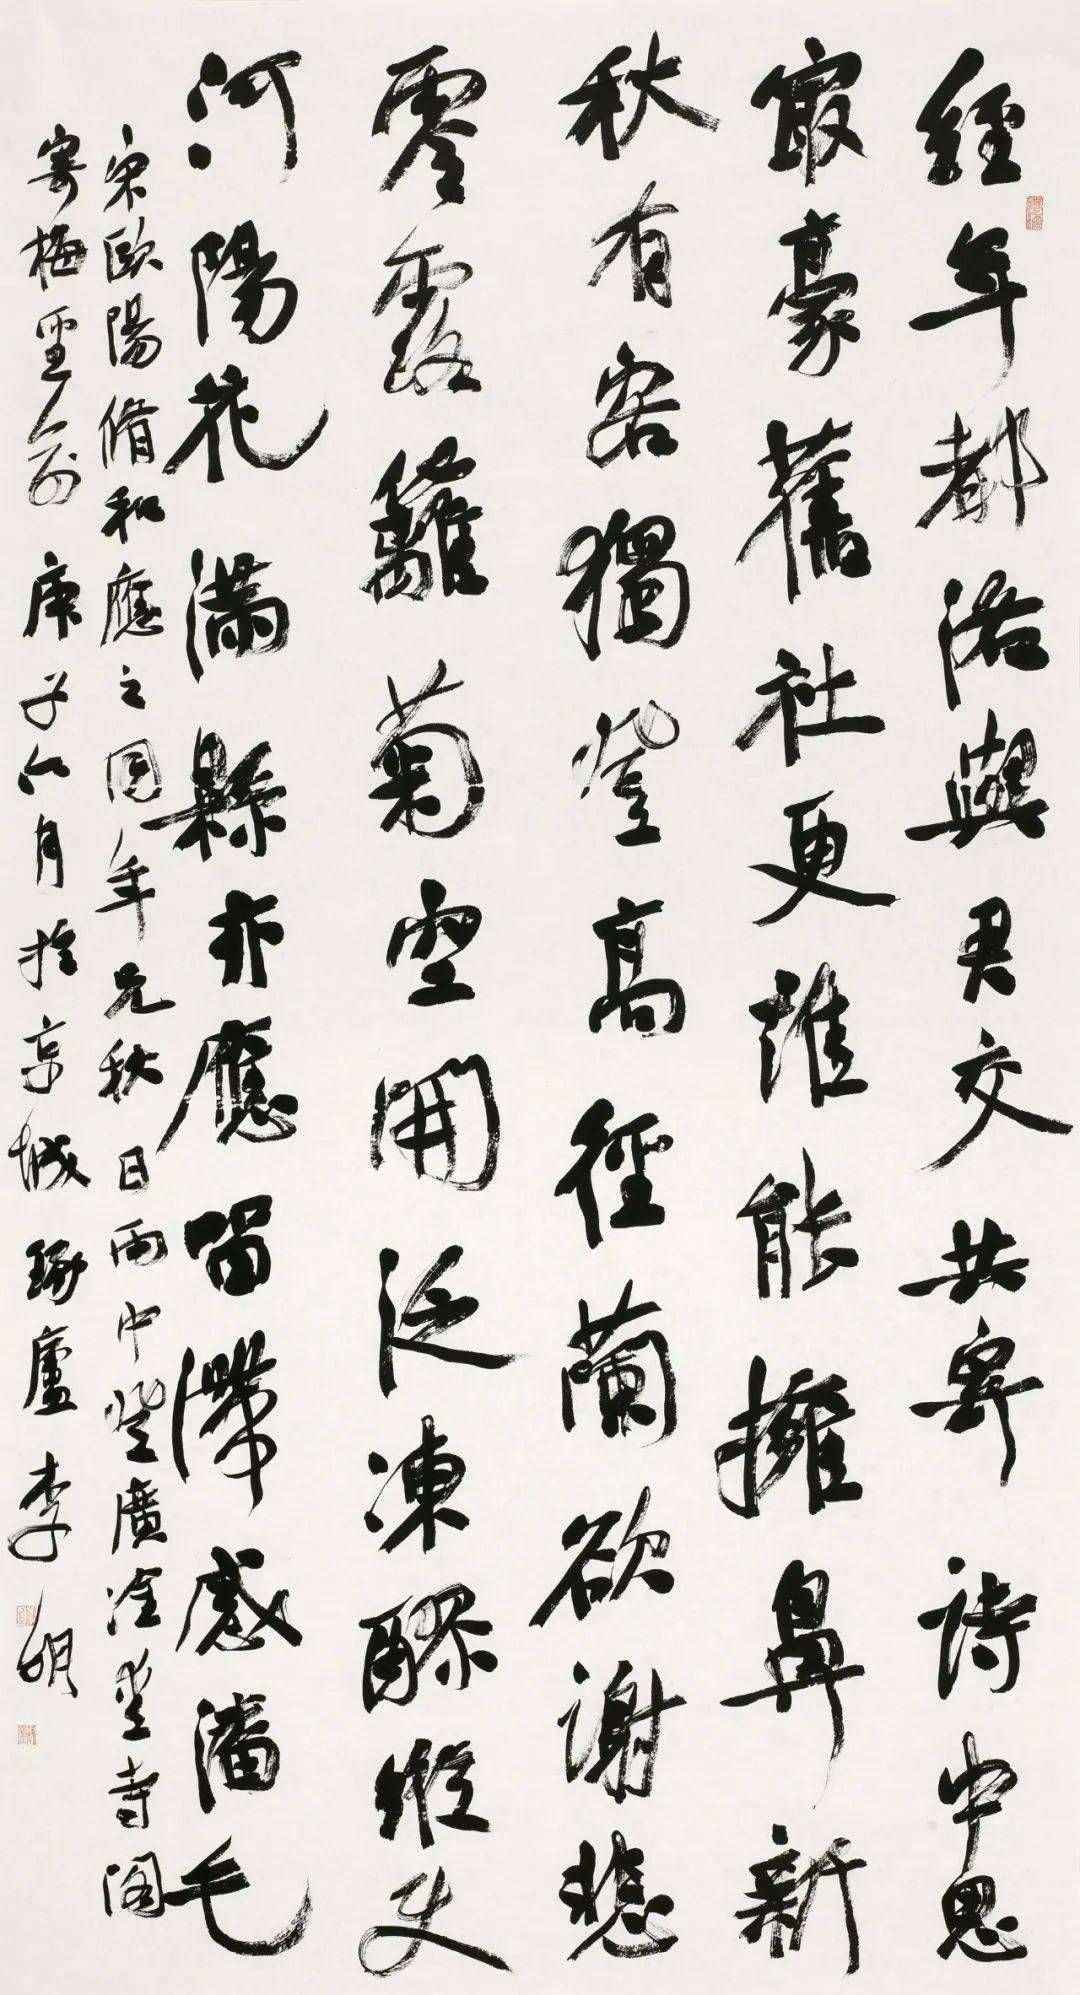 經年都洛與君交共寄詩中思
冣豪舊社更誰能擁鼻新
秋有客獨登高徑蘭欲謝悲
零露籬菊空開泛凍醪縱使
河陽花滿縣亦應留滯感潘毛
宋歐陽脩和應之同年兄秋日雨中登廣愛寺閣
寄梅聖俞 庚子六月於京城 琢廬李明